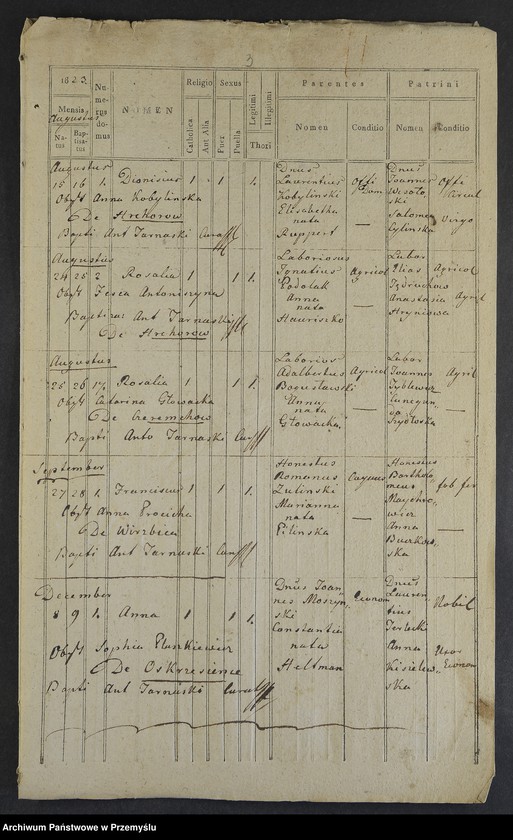 3
1823
Mensis
Augustus
Na-
tus
Bap-
tisa-
tus
Nu-
me-
rus
do-
mus
NOMEN
Religio
Catholica
Aut Alia
Sexus
Puer
Puella
Legitimi
Illegitimi
Thori
Parentes
Nomen
Conditio
Patrini
Nomen
Conditio
Augustus
15 16 1. Dionisius 1 1 1.
Obst Anna Kobylinska
De Hrehorow
Bapti Ant Tarnaski Cura
Dnus
Laurentius
Kobylinski
Elisabetha
nata
Ruppert
Offi
Dom
Dnus
Joannes
Wesoło
ski
Salomea
Cylinska
Offi
Circul
Virgo
Augustus
24 25 2 Rosalia 1 1 1
Obst Fesia Antoniszyna
Baptizat Ant Tarnaski
De Hrehorow
Laboriosus
Ignatius
Podolak
Anna
nata
Hauriszko
Agricol
Labor
Ilias
Anastasia
Hryniowa
Agricol
Agril
Augustus
25 26 17 Rosalia 1 1 1.
Obst Catarina Głowacka
De Czeremchow
Bapti Anto Tarnaski Cur
Laborios
Adalbertus
Bogusławski
Anna
nata
Głowacka
Agricol
Labor
Joannes
Agril
September
27 28 1. Franciscus 1 1 1.
Obst Anna Procicha
De Wirzbica
Bapti Ant Tarnaski Cur
Honestus
Romanus
Zulinski
Marianna
nata
Pilinska
Honestus
Bartholo
meus
Anna
Buczkow
ska
fab fer
December
8 9 1. Anna 1 1 1.
Obst Sophia Plunkiewicz
De Oskrzesince
Bapti Ant Tarnaski Curat
Dnus Joan
nes Moszyn
ski
Constantia
nata
Heltman
Econom
Dnus
Lauren
tius
Terlecki
Anna
Kisielew
ska
Nobil
Uxor
Econom
Archiwum Państwowe w Przemyślu